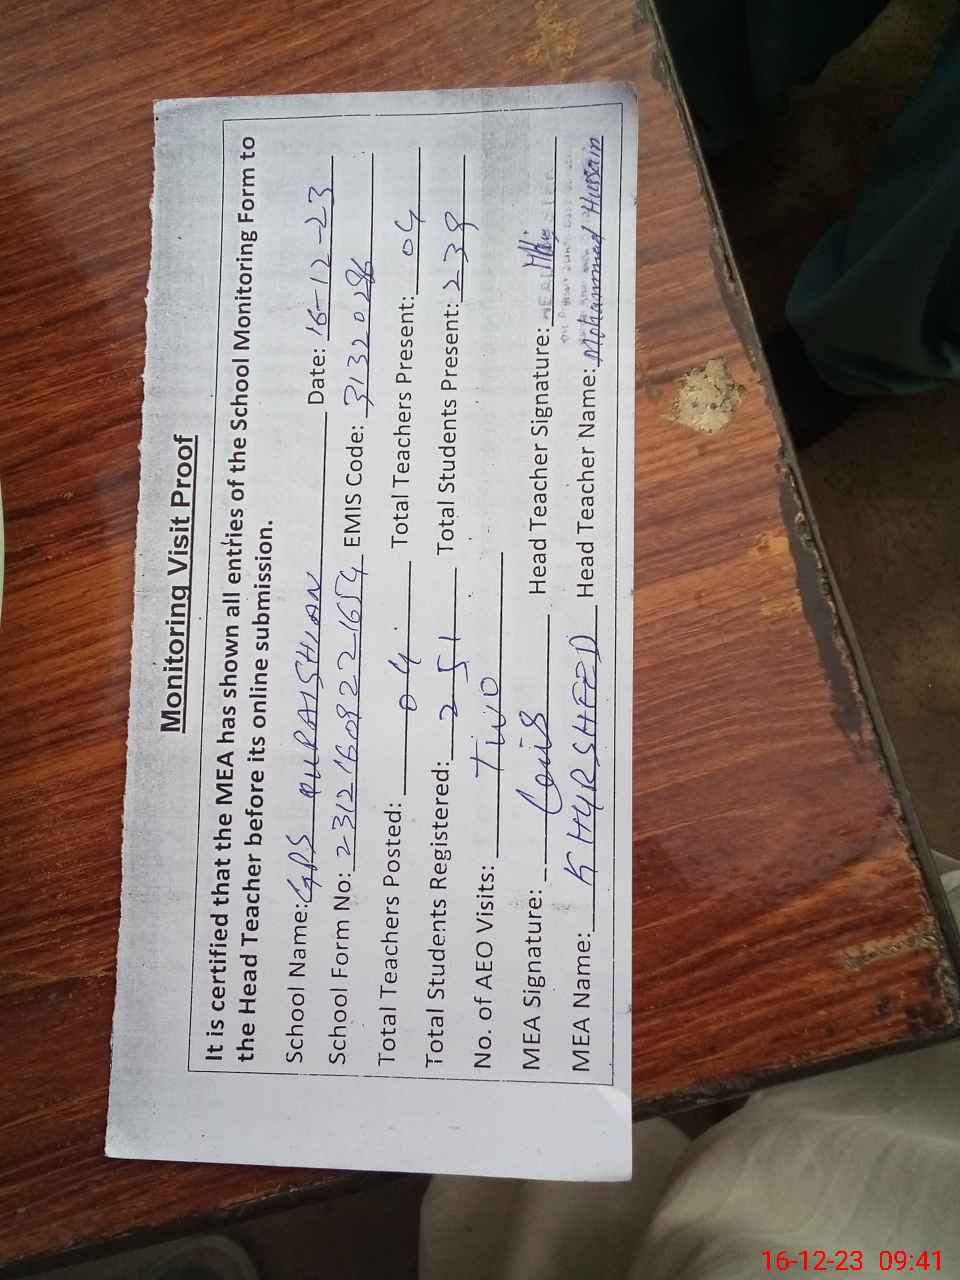 Monitoring Visit Proof
It is certified that the MEA has shown all entries of the School Monitoring Form to
the Head Teacher before its online submission.
School Name: GPS QURAISHIAN Date: 16-12-23
School Form No: 231216092221654 EMIS Code: 31320286
Total Teachers Posted: 04 Total Teachers Present: 04
Total Students Registered: 251 Total Students Present: 239
No. of AEO Visits: TWO
MEA Signature: Head Teacher Signature:
MEA Name: KHURSHEED Head Teacher Name: Mohammad Hussain
16-12-23 09:41